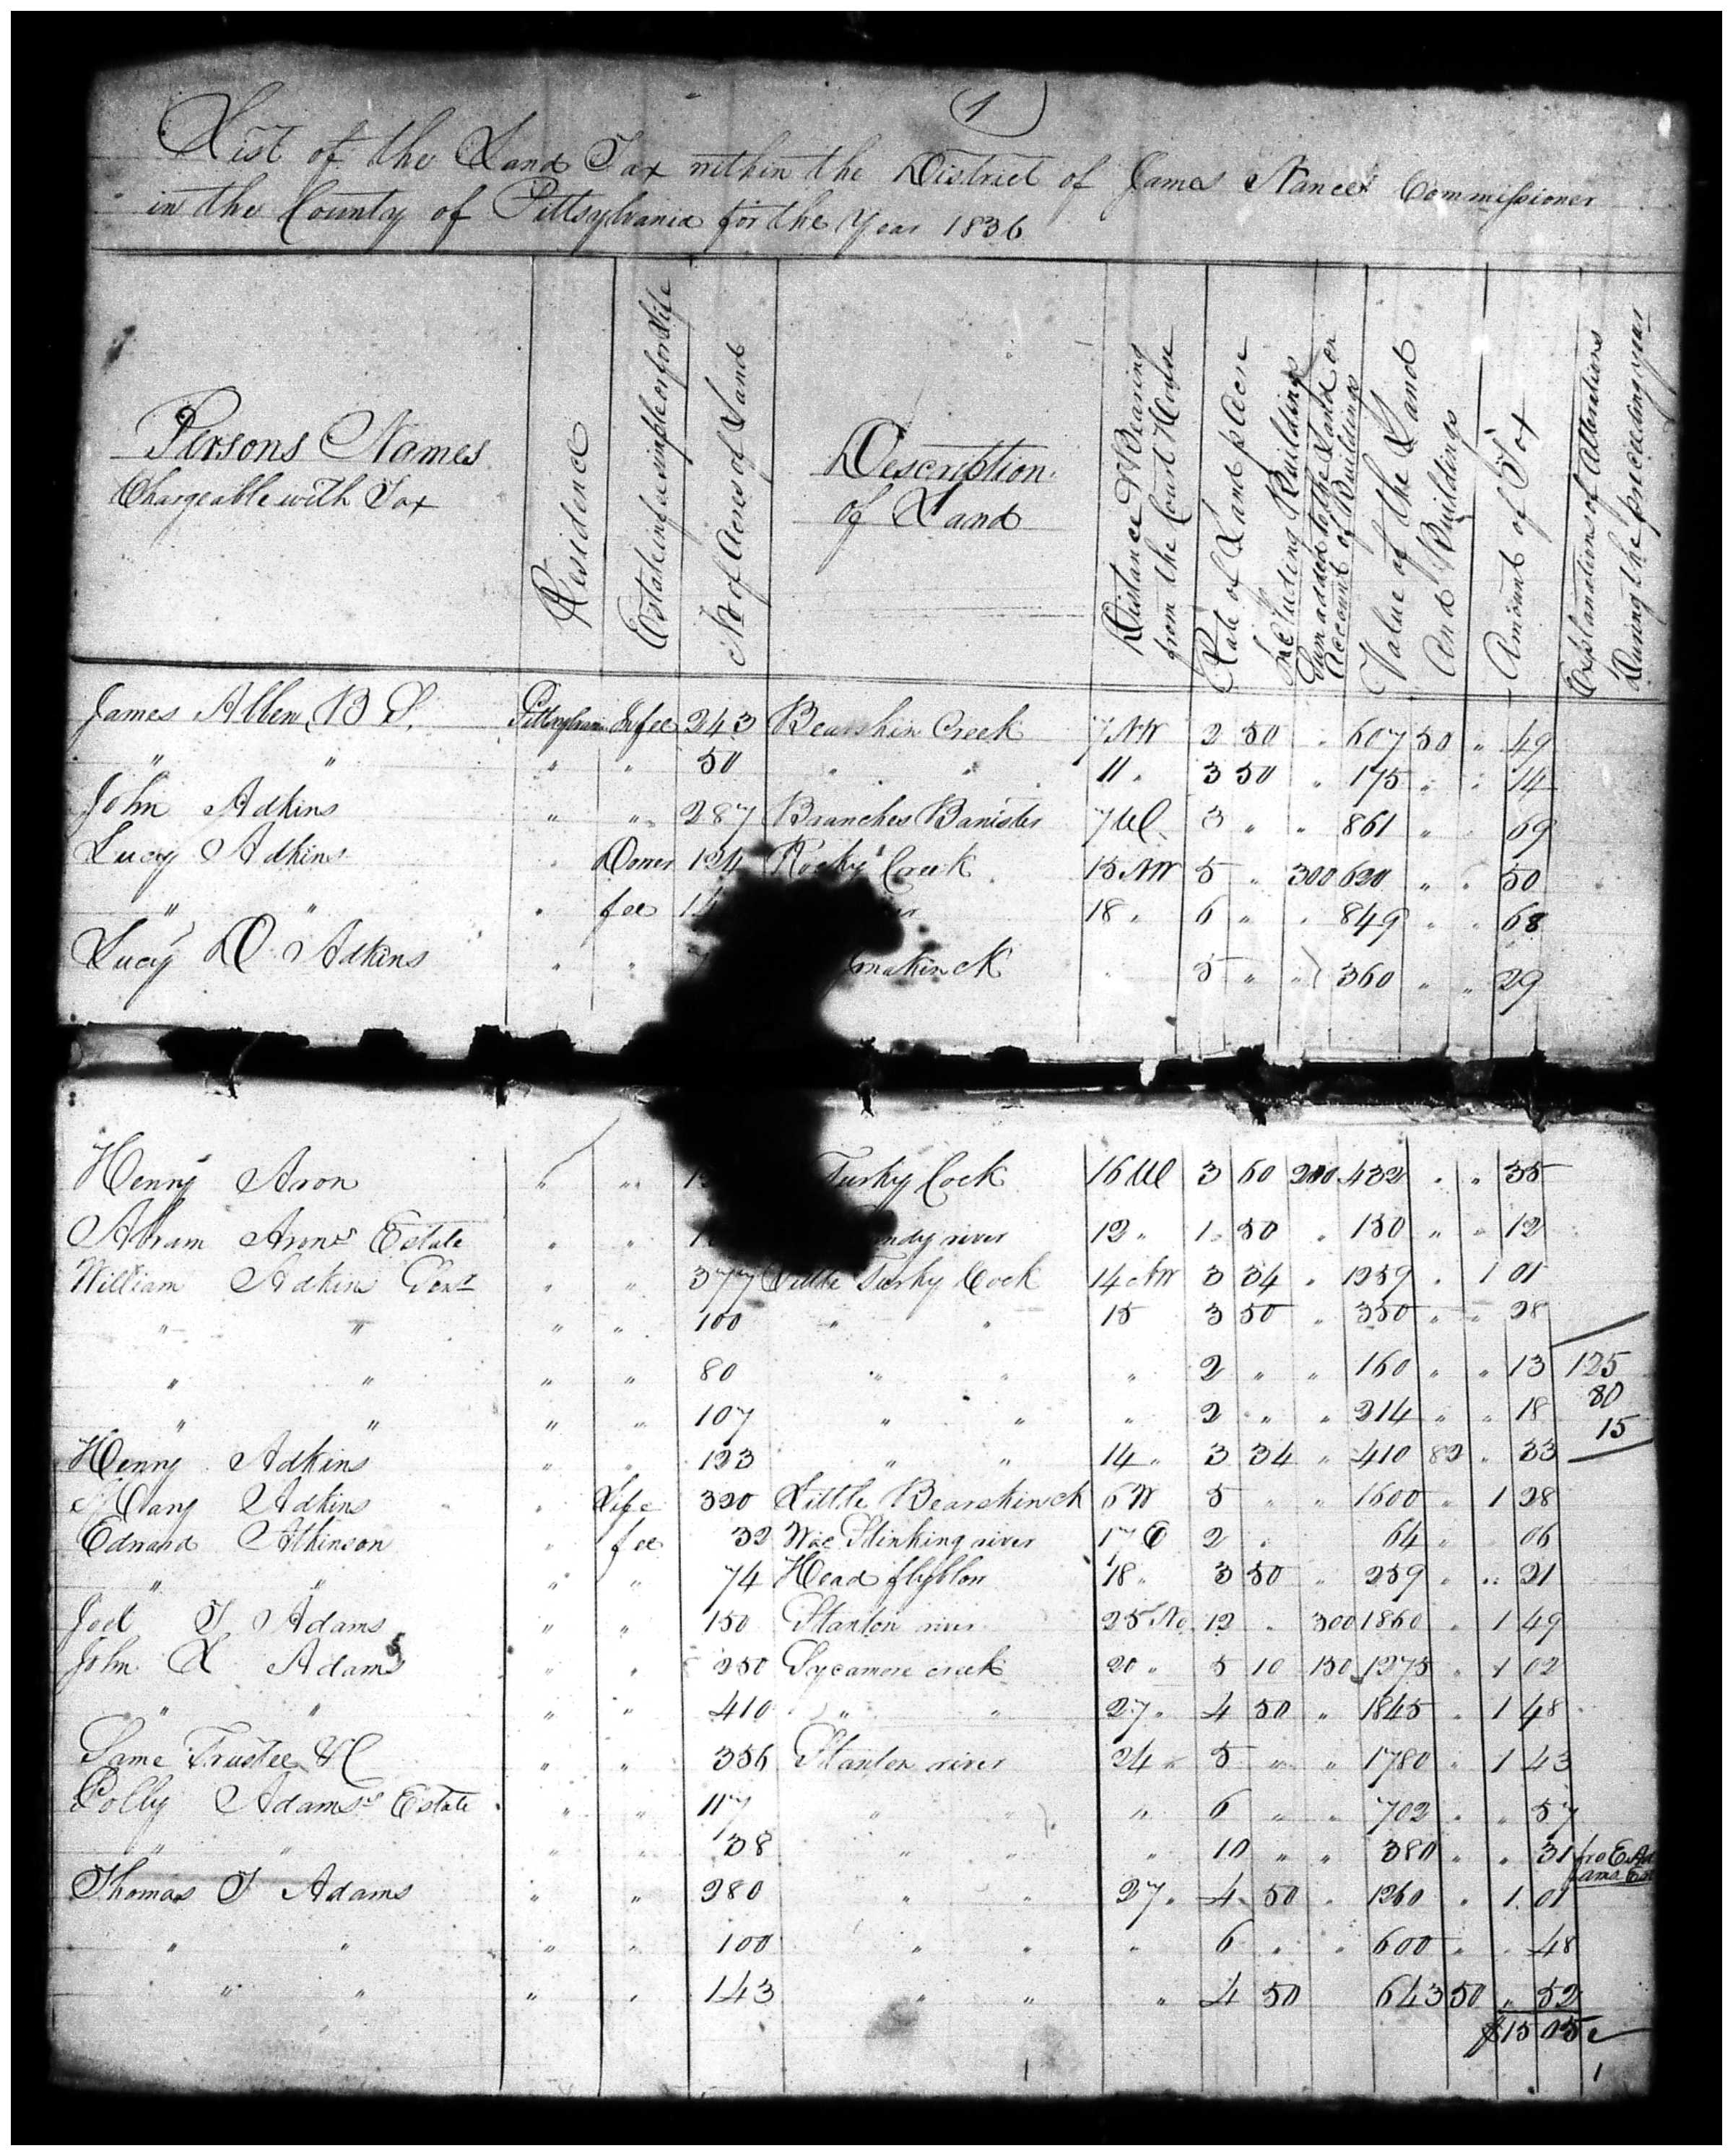 1
List of the Land Tax within the District of James Nance Commissioner
in the County of Pittsylvania for the Year 1836
Persons Names
Chargeable with Tax
Residence
Estate in fee simple or for Life
No of Acres of Land
Description
of Land
Distance & Bearing
from the Court House
Rate of Land p Acre
Including Buildings
Sum added to the Land on
Account of Buildings
Value of the Land
And Buildings
Amount of Tax
Explanations of Alterations
During the preceeding year
James Allen B S. Pittsylvania In fee 243 Bearskin Creek 7 NW 2 50 " 607 50 " 49
" " " " 50 " " 11 " 3 50 " 175 " " 14
John Adkins " " 287 Branches Banister 7 W 3 " " 861 " " 69
Lucy Adkins " Dower 124 Rocky Creek 15 NW 5 " 300 620 " " 50
" " " fee 18 " 6 " " 849 " " 68
Lucy D. Adkins " " " 5 " " 360 " " 29
Henry Aron " " Turky Cock 16 W 3 60 200 432 " " 35
Abram Arons Estate " " river 12 " 1 50 " 150 " " 12
William Adkins Senr " " 377 Little Turky Cock 14 NW 3 34 " 1259 " 1 01
" " " " 100 " " 15 3 50 " 350 " " 28
" " " " 80 " " " 2 " " 160 " " 13 125
" " " " 107 " " " 2 " " 214 " " 18 80
15
Henry Adkins " " 123 " " 14 " 3 34 " 410 82 " 33
Mary Adkins " Life 320 Little Bearskin ck 6 W 5 " " 1600 " 1 28
Edward Atkinson " fee 32 Stinking river 17 E 2 " 64 " 06
" " " " 74 Head flyblow 18 " 3 50 " 259 " " 21
Joel T Adams " " 150 Stanton river 25 No 12 " 300 1860 " 1 49
John L Adams " " 250 Sycamore creek 20 " 5 10 150 1275 " 1 02
" " " " 410 " " 27 " 4 50 " 1845 " 1 48
Same Trustee &C " " 356 Stanton river 24 " 5 " " 1780 " 1 43
Polly Adams's Estate " " 117 " " " 6 " " 702 " " 57
" " " " 38 " " " 10 " " 380 " " 31 fro E. Ad
ams Est
Thomas T Adams " " 280 " " 27 " 4 50 " 1260 " 1 01
" " " " 100 " " " 6 " " 600 " " 48
" " " " 143 " " " 4 50 643 50 " 52
$15 05